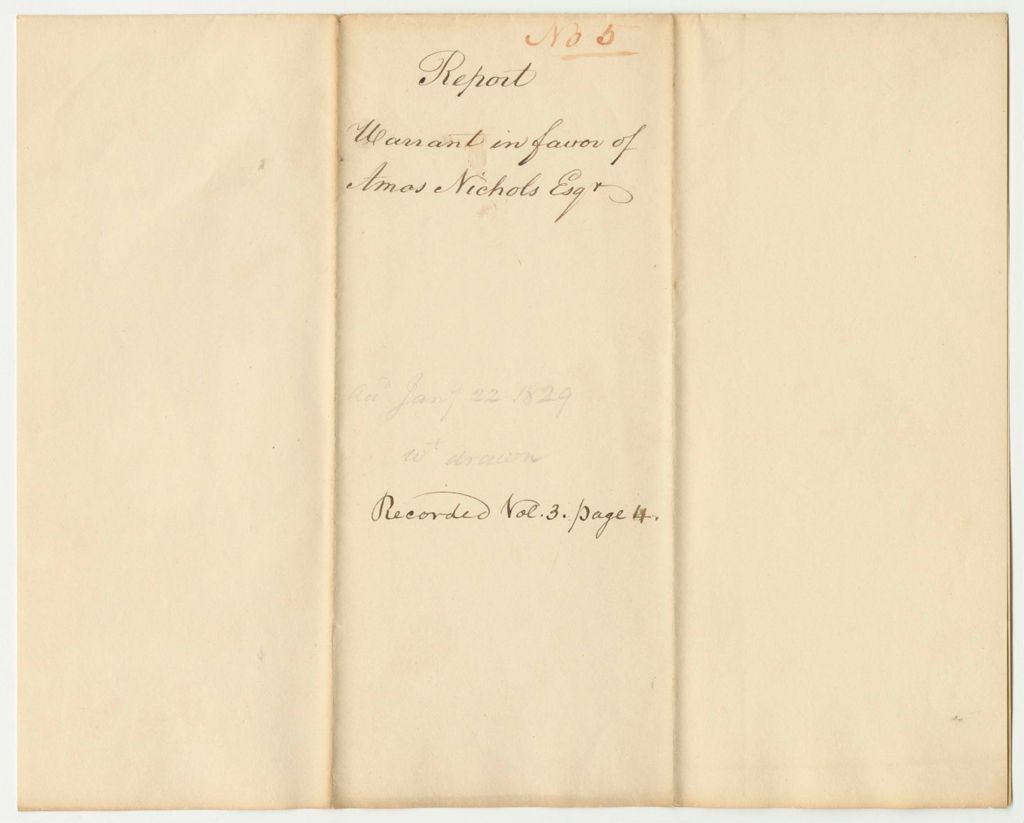 No 5
Report
Warrant in favor of
Amos Nichols Esqr
Jany 22 1829
wt drawn
Recorded Vol. 3. page 4.